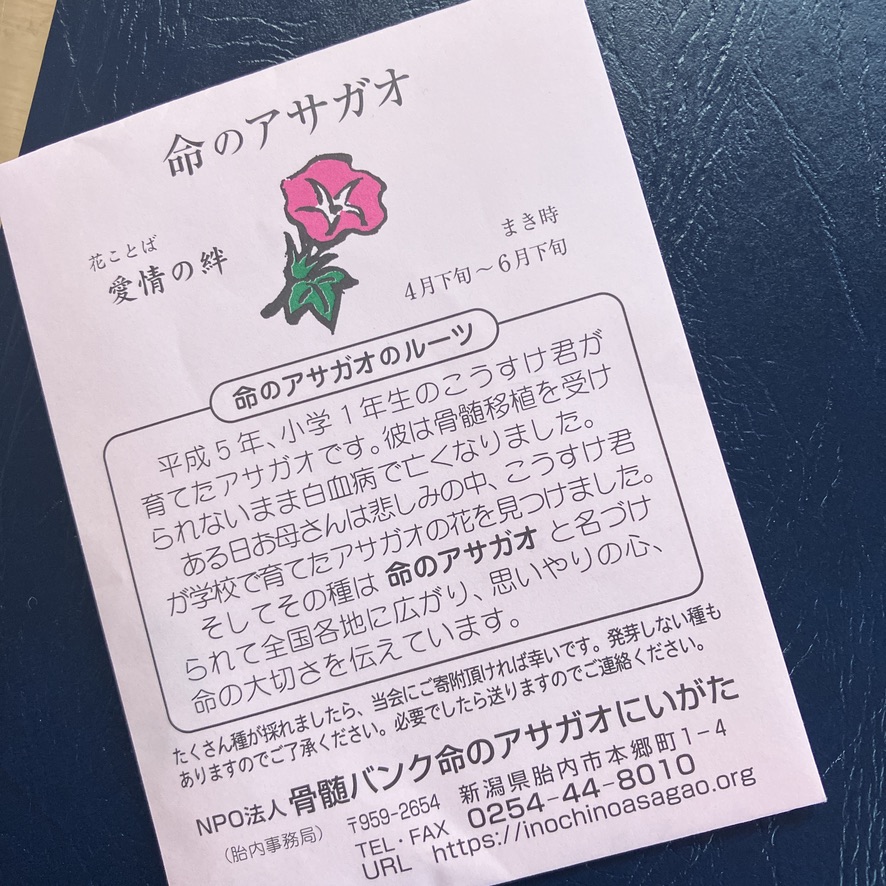 命のアサガオ
花ことば
愛情の絆
まき時
4月下旬～6月下旬
命のアサガオのルーツ
平成5年、小学1年生のこうすけ君が
育てたアサガオです。彼は骨髄移植を受け
られないまま白血病で亡くなりました。
ある日お母さんは悲しみの中、こうすけ君
が学校で育てたアサガオの花を見つけました。
そしてその種は 命のアサガオ と名づけ
られて全国各地に広がり、思いやりの心、
命の大切さを伝えています。
たくさん種が採れましたら、当会にご寄附頂ければ幸いです。発芽しない種も
ありますのでご了承ください。必要でしたら送りますのでご連絡ください。
NPO法人 骨髄バンク命のアサガオにいがた
（胎内事務局）
〒959-2654 新潟県胎内市本郷町1-4
TEL・FAX 0254-44-8010
URL https://inochinoasagao.org